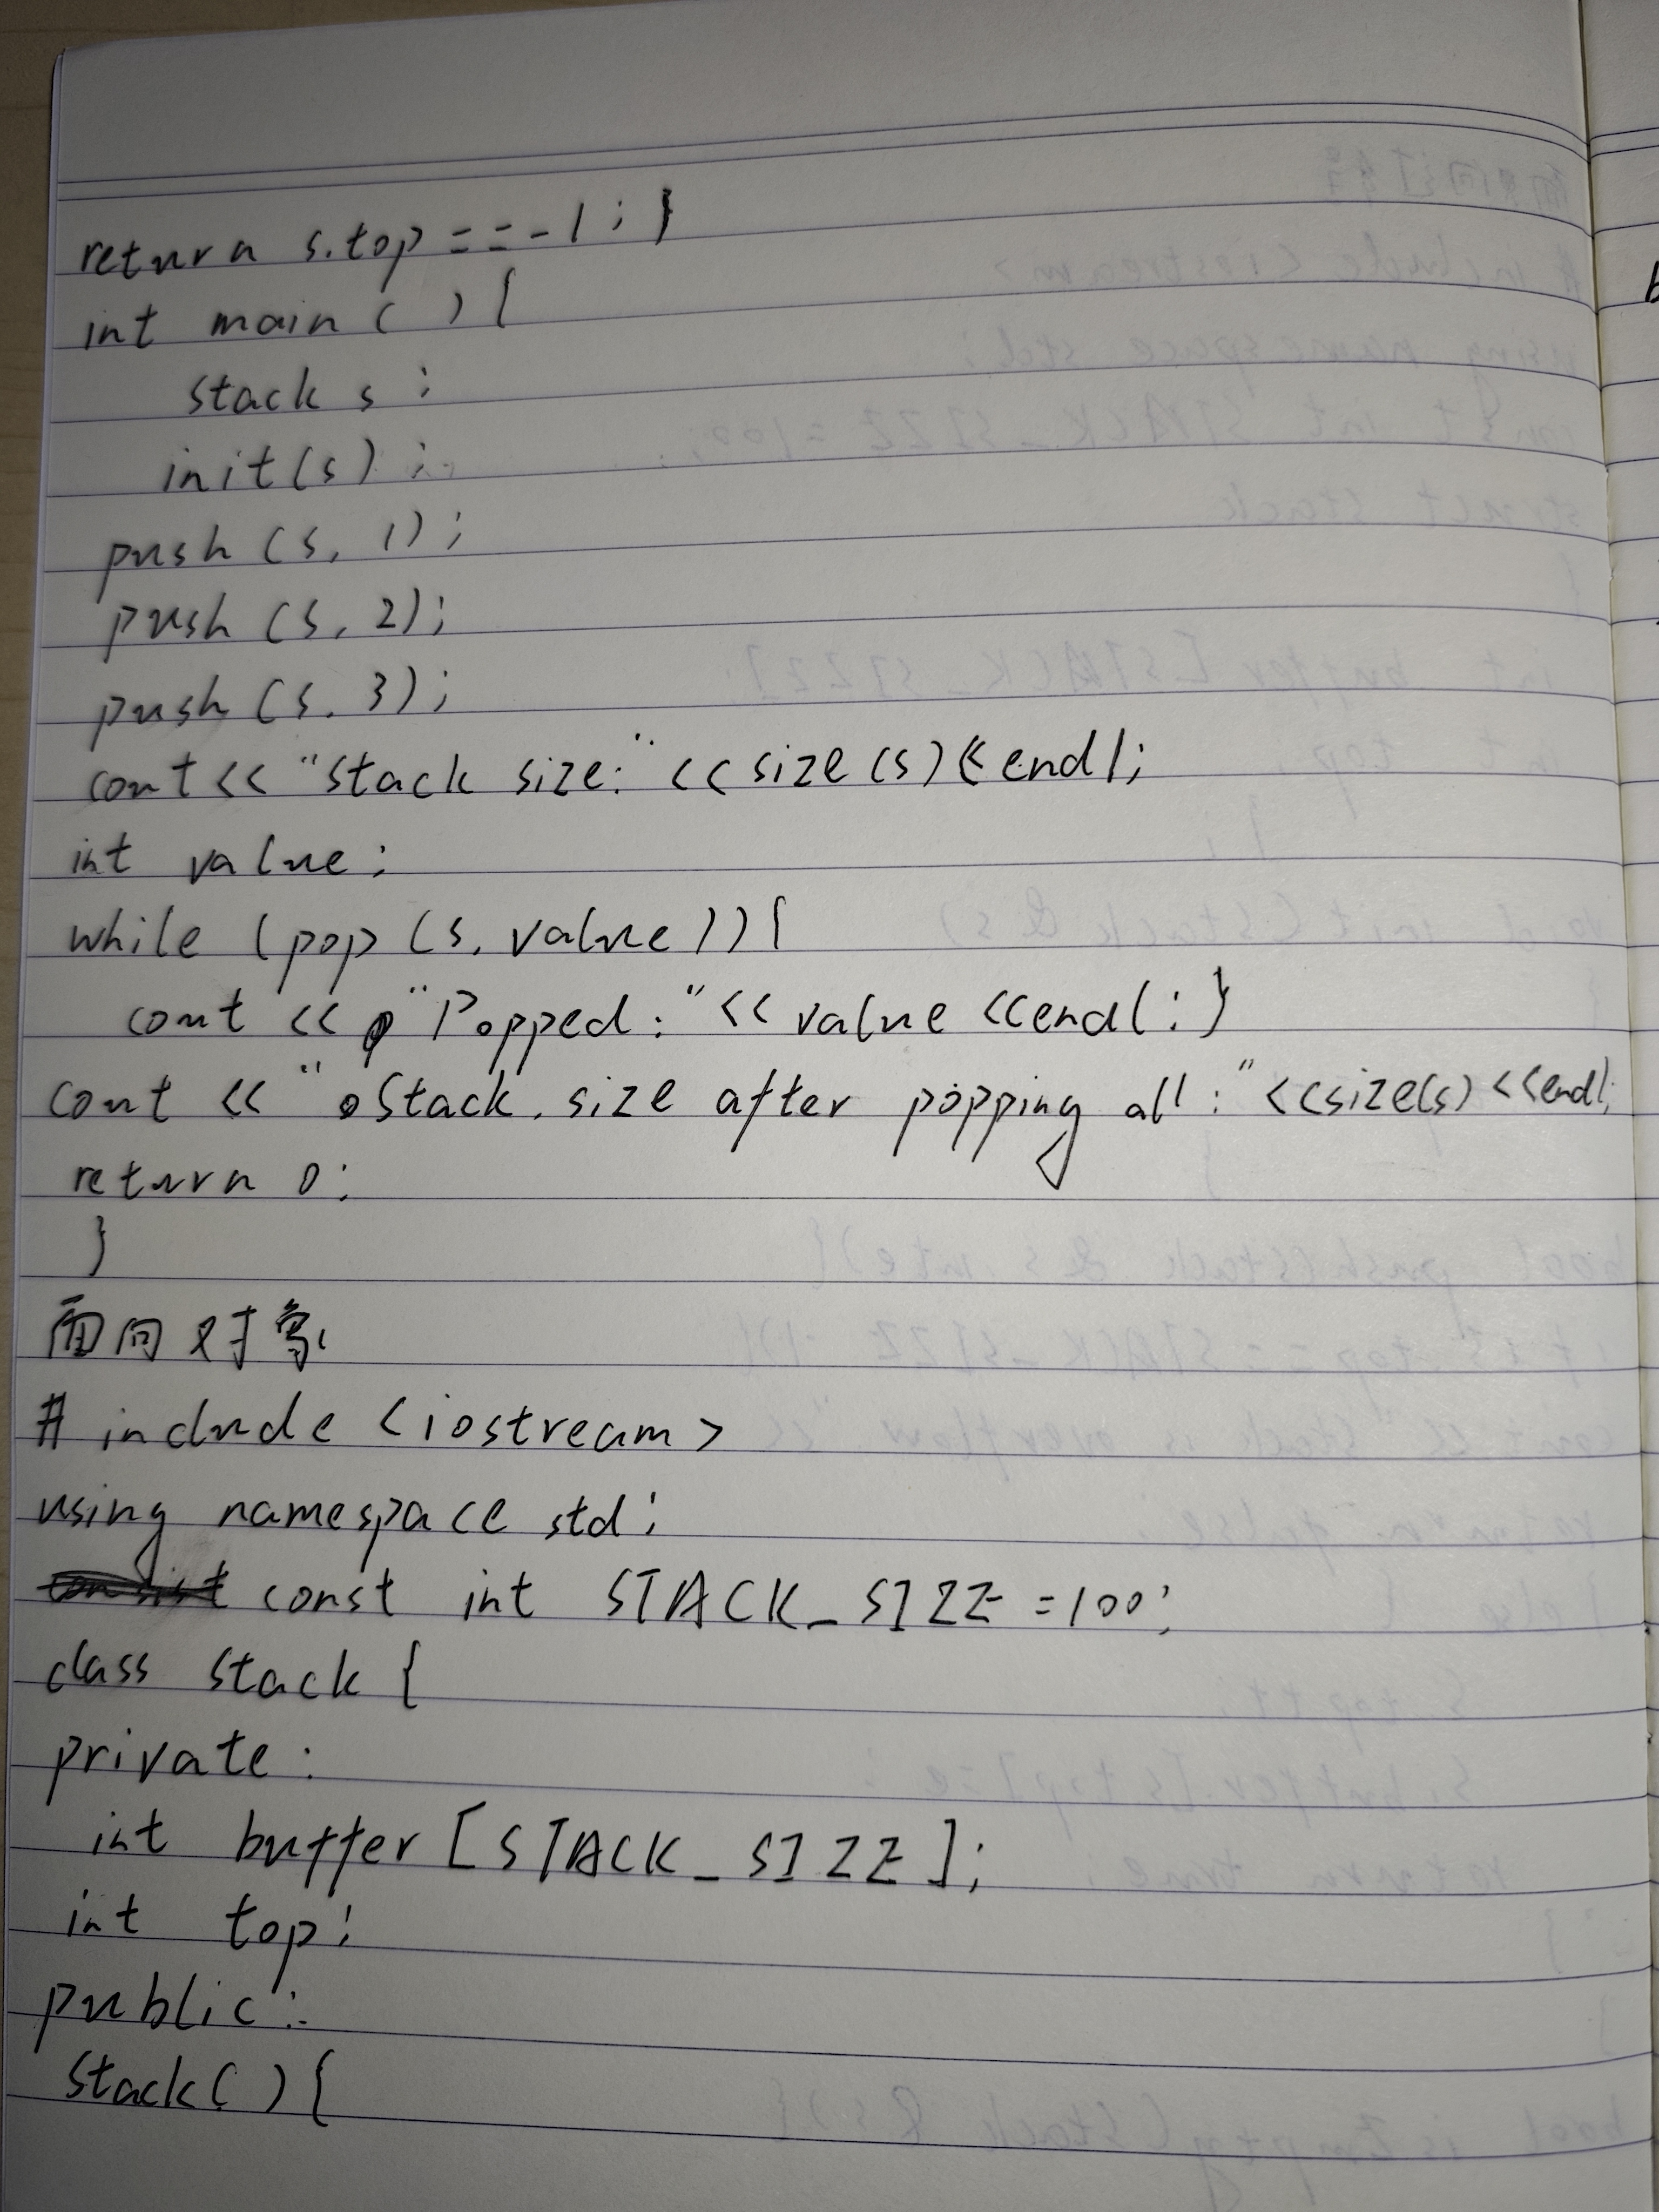 return s.top==-1;}
int main(){
stack s;
init(s);
push(s,1);
push(s,2);
push(s,3);
cout<<"Stack size:"<<size(s)<<endl;
int value;
while(pop(s,value)){
cout<<"Popped:"<<value<<endl;}
cout<<"Stack size after popping all:"<<size(s)<<endl;
return 0;
}
面向对象
#include<iostream>
using namespace std;
const int STACK_SIZE=100;
class stack{
private:
int buffer[STACK_SIZE];
int top;
public:
stack(){